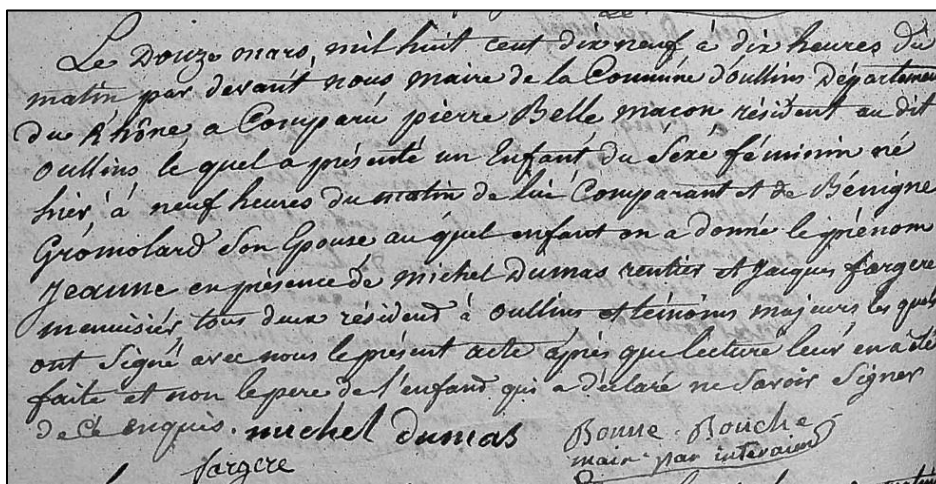 Le Douze mars, mil huit cent dix neuf à dix heures du
matin par devant nous maire de la Commune d'oullins Département
du Rhône a Comparû pierre Belle maçon résident au dit
oullins le quel a présenté un Enfant du Séxe féminin né
hier à neuf heures du matin de lui Comparant et de Bénigne
Gromolard Son Epouse au quel enfant on a donné le prénom
Jeanne en présence de michel Dumas rentier et Jacques fargere
menuisier tous deux résidend à oullins et témoins majeurs les quels
ont Signé avec nous le présent acte après que lecture leur en a été
faite et non le pere de l'enfant qui a déclaré ne Savoir Signer
de ce enquis. michel dumas Bonne-Bouche
fargere maire par interaim